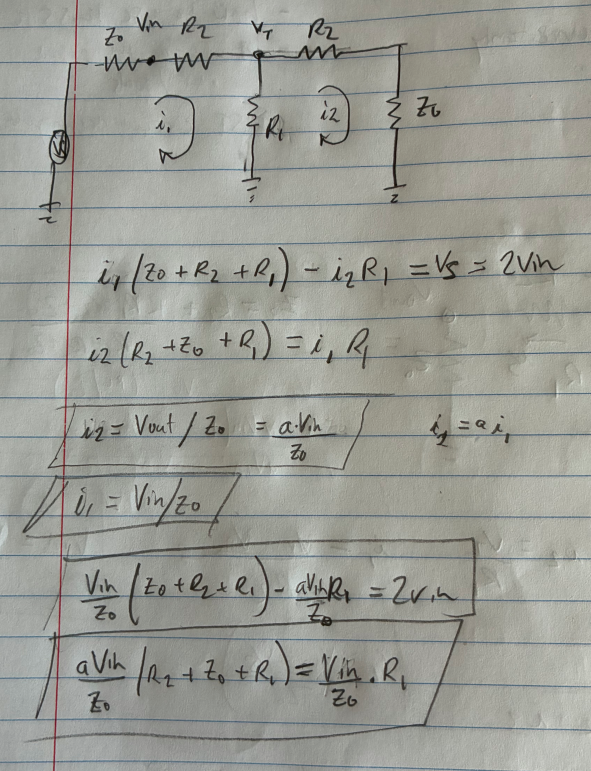 Z₀ Vin R₂ V_T R₂
i₁ R₁ i₂ Z₀
i₁ (Z₀ + R₂ + R₁) - i₂ R₁ = Vs = 2Vin
i₂ (R₂ + Z₀ + R₁) = i₁ R₁
i₂ = Vout / Z₀ = a·Vin / Z₀ i₂ = a i₁
i₁ = Vin/Z₀
Vin/Z₀ (Z₀ + R₂ + R₁) - aVin/Z₀ R₁ = 2Vin
aVin/Z₀ (R₂ + Z₀ + R₁) = Vin/Z₀ · R₁